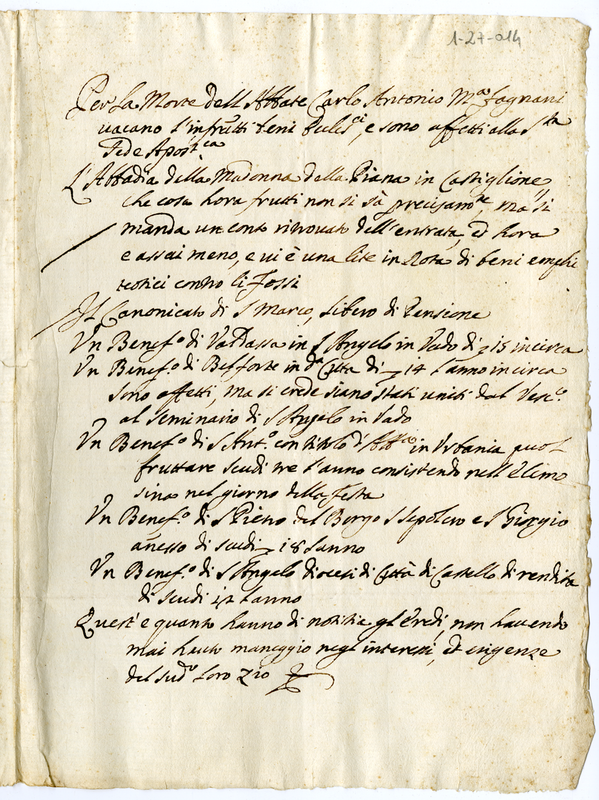 1-27-014
Per la Morte dell Abbate Carlo Antonio M.a Fagnani
vacano l'infr.tti beni Eccles.ci, e sono affetti alla S.ta
Sede Apost.ca
L'Abbadia della Madonna della Piana in Castiglione,
che cosa hora frutti non si sà precisam.te, ma si
manda un conto ritrovato dell'entrata, et hora
e assai meno, e vi è una lite in Rota di beni emphi
teotici contro li Fossi
Il Canonicato di S Marco, libero di Pensione
Un Benef.o di Valdassa in S Angelo in Vado di 15 incirca
Un Benef.o di Belforte in d.a Città di 14 l'anno incirca
sono affetti, ma si crede siano stati uniti dal Ves.co
al seminario di S Angelo in Vado
Un Benef.o di S Ant.o con titolo d' in Urbania puol
fruttare scudi tre l'anno consistendo nell'Elemo
sina nel giorno della festa
Un Benef.o di S Pietro del Borgo S Sepolcro e S Giorgio
anesso di scudi 18 l'anno
Un Benef.o di S Angelo diocesi di Città di Castello di rendita
di scudi l'anno
Quest'è quanto hanno di notitia gl'Eredi, non havendo
mai hauto maneggio negl'interessi, et esigenze
del sud.o loro Zio